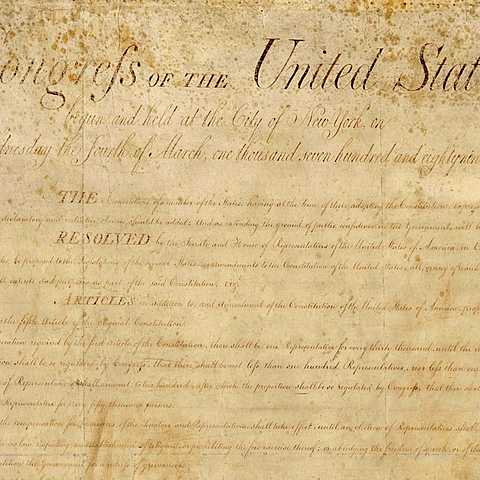 ongreſs OF THE United Stat
begun and held at the City of New York, on
dnesday the Fourth of March, one thousand seven hundred and eightynin
THE Conventions of a number of the States, having at the time of their adopting the Constitution, expres
declaratory and restrictive clauses should be added: And as extending the ground of public confidence in the Government, will b
RESOLVED by the Senate and House of Representatives of the United States of America, in C
be proposed to the Legislatures of the several States, as amendments to the Constitution of the United States, all, or any of
intents and purposes, as part of the said Constitution; viz.
ARTICLES in addition to, and Amendment of the Constitution of the United States of America, prop
the fifth Article of the original Constitution.
eration required by the first Article of the Constitution, there shall be one Representative for every thirty thousand, until the
tion shall be so regulated by Congreſs, that there shall be not leſs than one hundred Representatives, nor leſs than one
of Representatives shall amount to two hundred, after which the proportion shall be so regulated by Congreſs, that there shall
Representative for every fifty thousand persons.
the compensation for the services of the Senators and Representatives, shall take effect, until an election of Representatives shall
no law respecting an establishment of religion, or prohibiting the free exercise thereof; or abridging the freedom of speech, or of the
petition the Government for a redreſs of grievances.